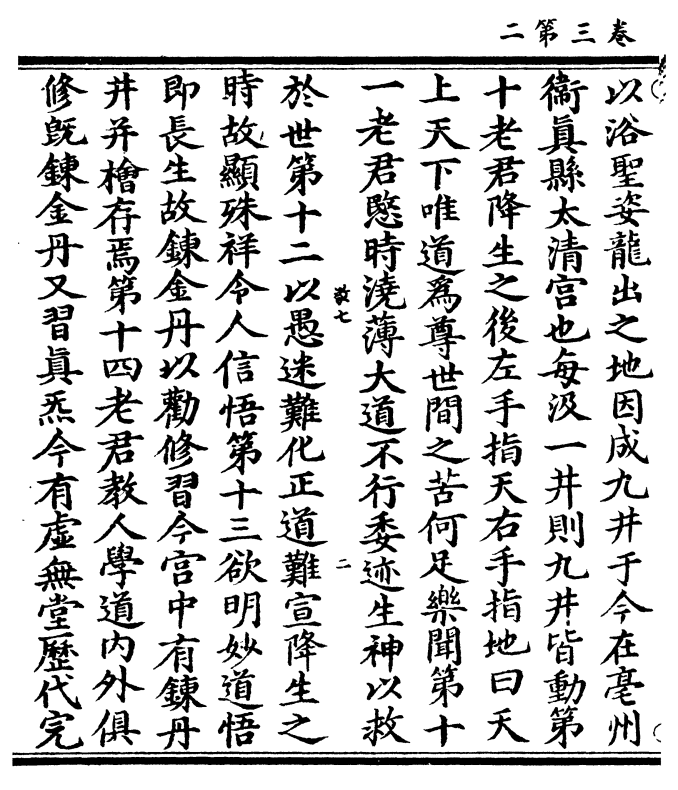 卷三第二
以浴聖姿龍出之地因成九井于今在亳州
衞眞縣太清宫也每汲一井則九井皆動第
十老君降生之後左手指天右手指地曰天
上天下唯道爲尊世間之苦何足樂聞第十
一老君愍時澆薄大道不行委迹生神以救
敦七
二
於世第十二以愚迷難化正道難宣降生之
時故顯殊祥令人信悟第十三欲明妙道悟
即長生故鍊金丹以勸修習今宫中有鍊丹
井并檜存焉第十四老君教人學道内外俱
修旣鍊金丹又習眞炁今有虚無堂歷代完